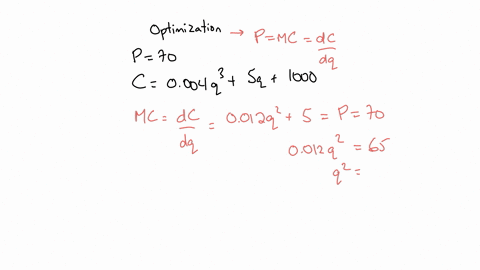 Optimization → P = MC = dC/dq
P = 70
C = 0.004q³ + 5q + 1000
MC = dC/dq = 0.012q² + 5 = P = 70
0.012q² = 65
q² =